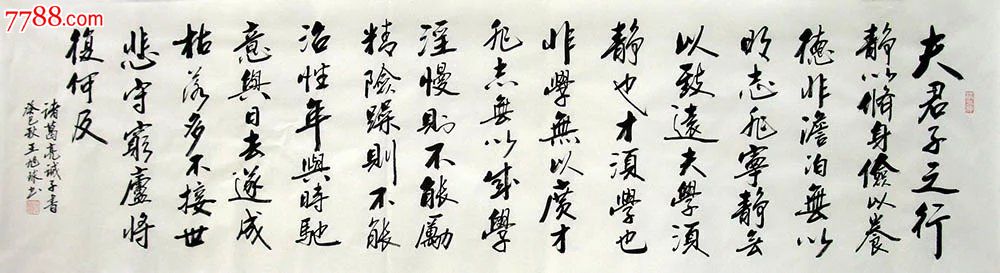 7788.com
夫君子之行
静以脩身儉以養
德非澹泊無以
明志非寧静無
以致遠夫學須
静也才須學也
非學無以廣才
非志無以成學
淫慢則不能勵
精險躁則不能
治性年與時馳
意與日去遂成
枯落多不接世
悲守窮廬將
復何及
諸葛亮誡子書
癸巳秋王旭